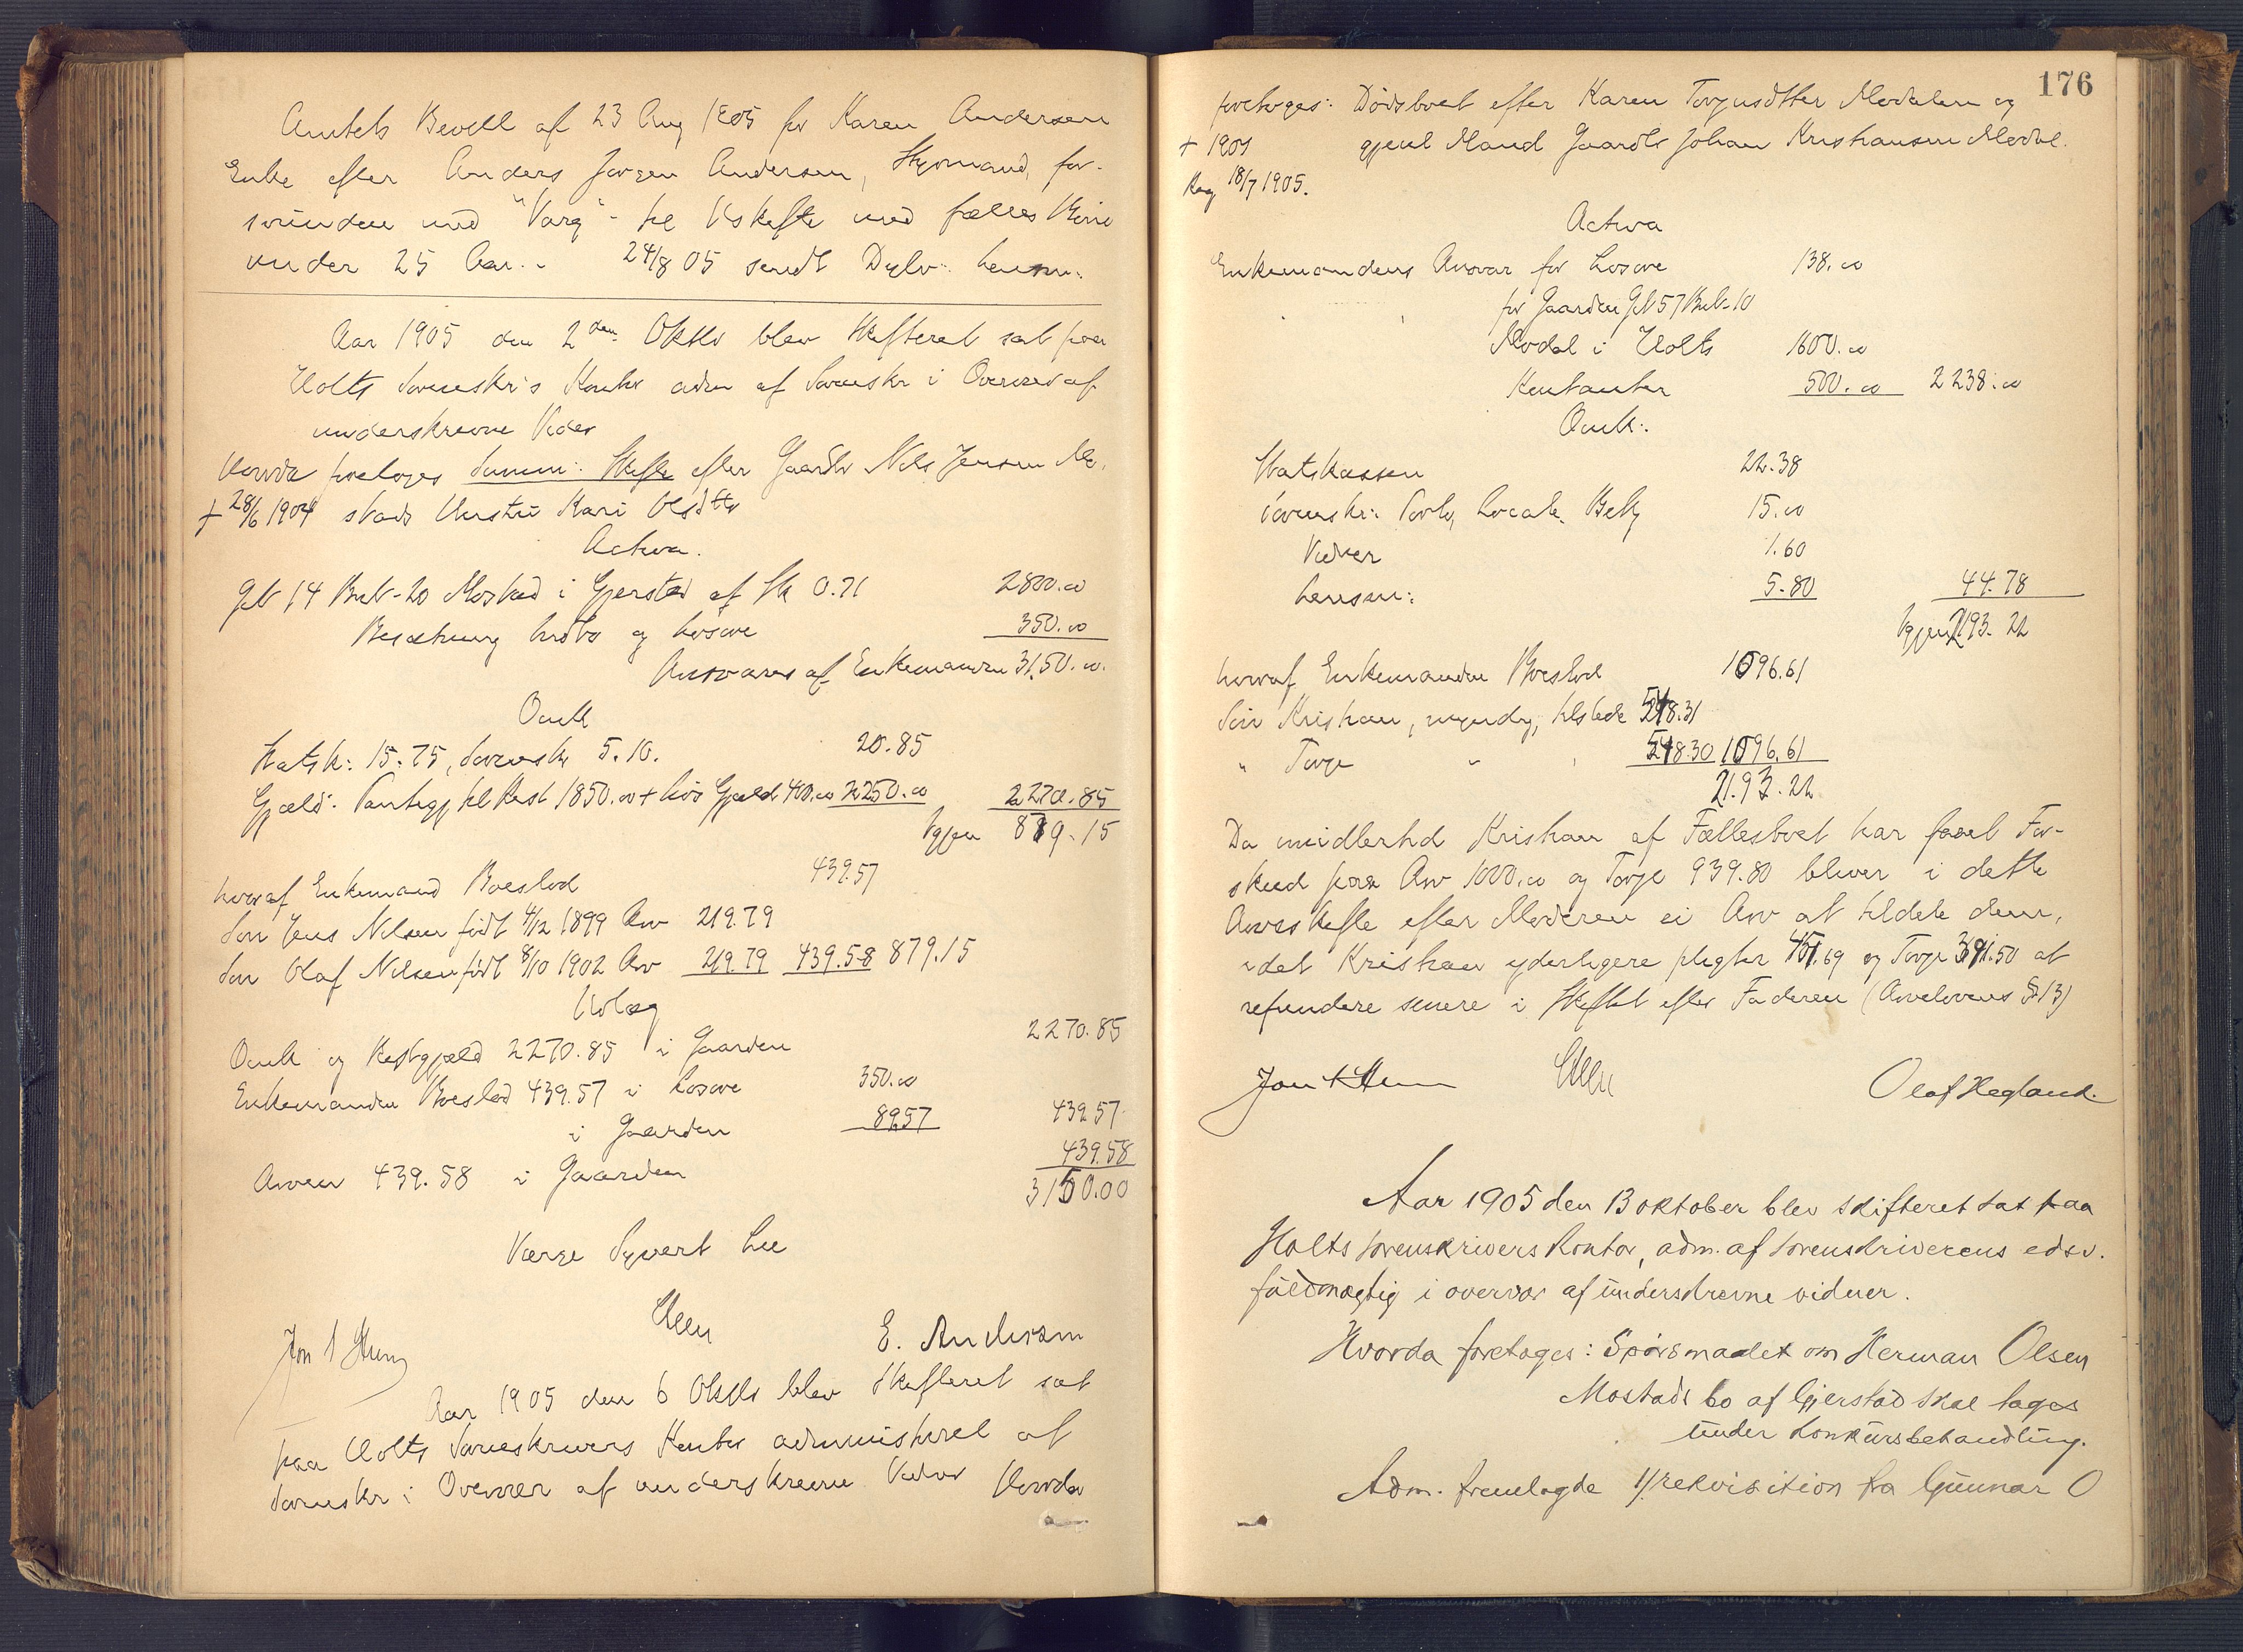 Amtets Bevill af 23 Aug 1905 for Karen Andersen
Enke efter Anders Jørgen Andersen, Styrmand, for-
svunden med "Varg" - til Uskifte med fælles Børn
under 25 Aar. - 24/8 05 sendt lensm:
Aar 1905 den 2den Oktbr blev Skifteret sat paa
Holts Sorenskr's Kontor adm af Sorenskr i Overvær af
underskrevne Vidner
Hvorda foretoges Summ: Skifte efter Gaardbr Nils Jensen
+ 28/6 1904 Hustru Kari Olsdtr
Activa.
Gb 14 Bnr-20 Mostad i Gjerstad af Sk 0.71 2800.00
Besætning Indbo og Løsøre 350.00
Ansvares af Enkemanden 3150.00.
Omk
Statsk: 15.75, Sorensk 5.10. 20.85
Gjæld: Panteg til Rest 1850.00 + Løs Gjæld 400.00 2250.00 2270.85
Igjen 879.15
hvoraf Enkemand Boeslod 439.57
Søn Jens Nilsen født 4/12 1899 Arv 219.79
Søn Olaf Nilsen født 8/10 1902 Arv 219.79 439.58 879.15
Udlæg
Omk og Restgjæld 2270.85 i Gaarden 2270.85
Enkemanden Boeslod 439.57 i Løsøre 350.00
i Gaarden 89.57 439.57
Arven 439.58 i Gaarden 439.58
3150.00
Værge Syvert Lie
E. Andersen
Aar 1905 den 6 Oktbr blev Skifteret sat
paa Holts Sorenskrivers Kontor administreret af
Sorenskr i Overvær af underskrevne Vidner Hvorda
176
foretoges: Dødsboet efter Karen Torjusdtter Modalen og
+ 1901 gjenl Mand Gaardbr Johan Kristiansen Modal.
Reg 18/7 1905.
Activa
Enkemandens Ansvar for Løsøre 138.00
for Gaarden Gb 57 Bnr-10
Modal i Holts 1600.00
Kontanter 500.00 2238.00
Omk:
Statskassen 22.38
Sorenskr: Porto, Locale, Bek 15.00
Vidner 1.60
Lensm: 5.80 44.78
Igjen 2193.22
hvoraf Enkemanden Boeslod 1096.61
Søn Kristian, myndig, tilstede 548.31
" Torje " 548.30 1096.61
2193.22
Da imidlertid Kristian af Fællesboet har faaet For-
skud paa Arv 1000.00 og Torje 939.80 bliver i dette
Arveskifte efter Moderen ei Arv at tildele dem,
idet Kristian yderligere pligter 451.69 og Torje 391.50 at
refundere senere i Skiftet efter Faderen (Arvelovens § 13)
Olaf Hegland.
Aar 1905 den 13 oktober blev skifteret sat paa
Holts sorenskrivers kontor, adm. af sorenskriverens edsv.
fuldmægtig i overvær af underskrevne vidner.
Hvorda foretages: Spørsmaalet om Herman Olsen
Mostads bo af Gjerstad skal tages
under konkursbehandling.
Adm. fremlagde 1/ rekvisition fra Gunnar O